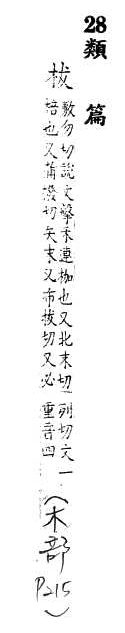 28類篇
柭
敷勿切說文擊禾連枷也又北末切
棓也又蒲撥切矢末又布拔切又必
列切文一
重音四
(木部
P215)